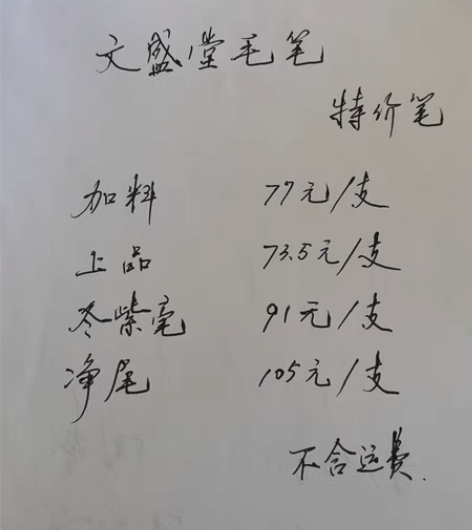 文盛堂毛笔
特价笔
加料 77元/支
上品 73.5元/支
冬紫毫 91元/支
净尾 105元/支
不含运费.